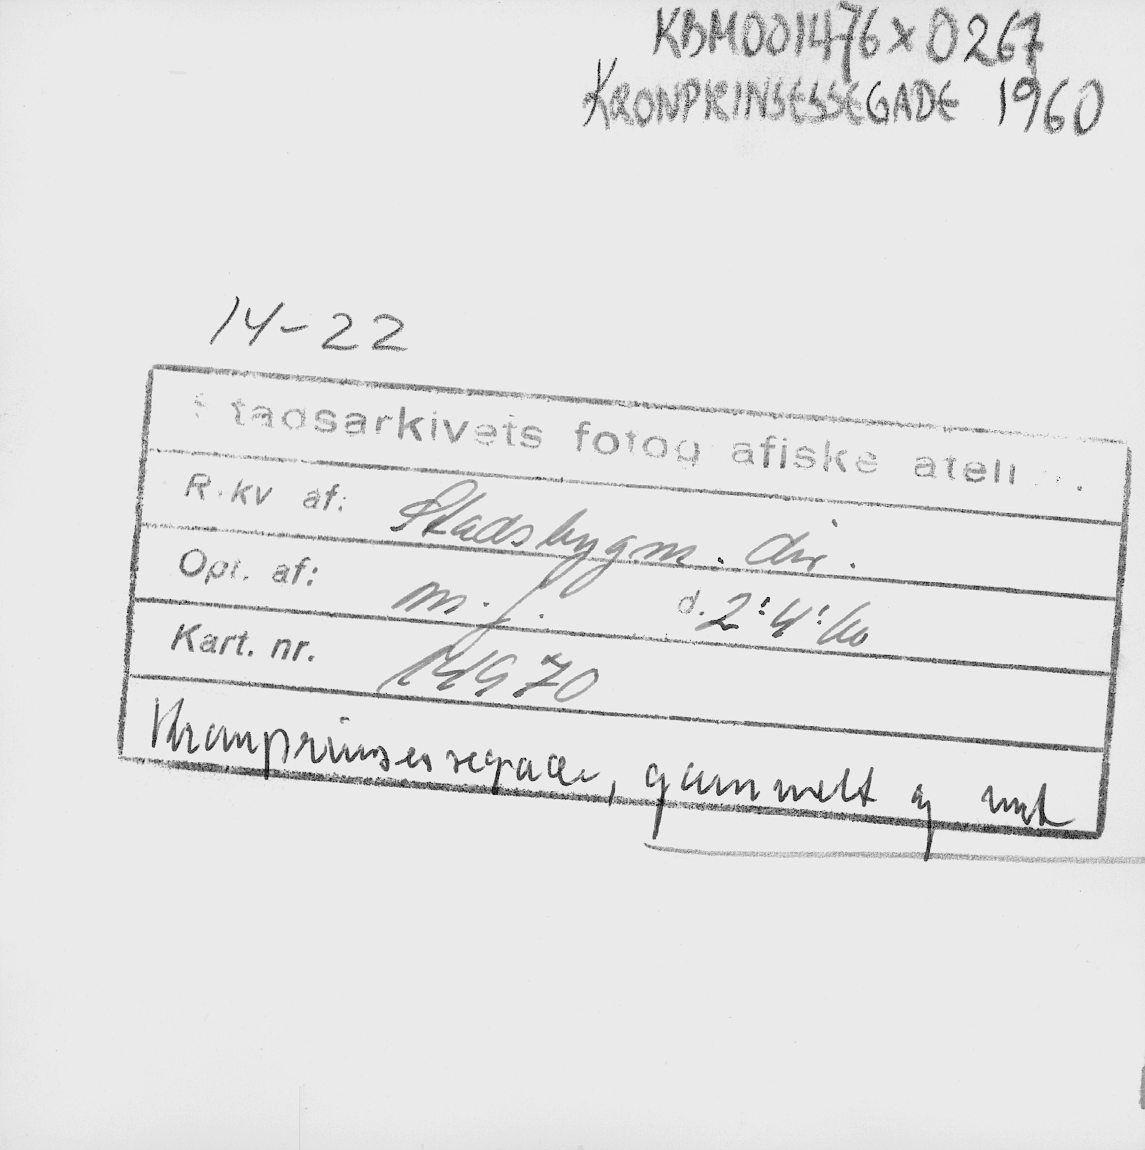 KBM001476x0267
KRONPRINSESSEGADE 1960
14-22
Stadsarkivets fotografiske atelier.
Rekv af: Stadsbygm. dir.
Opt. af: m. f. d. 2:4:60
Kart. nr. 14970
Kronprinsessegade, gammelt og nyt